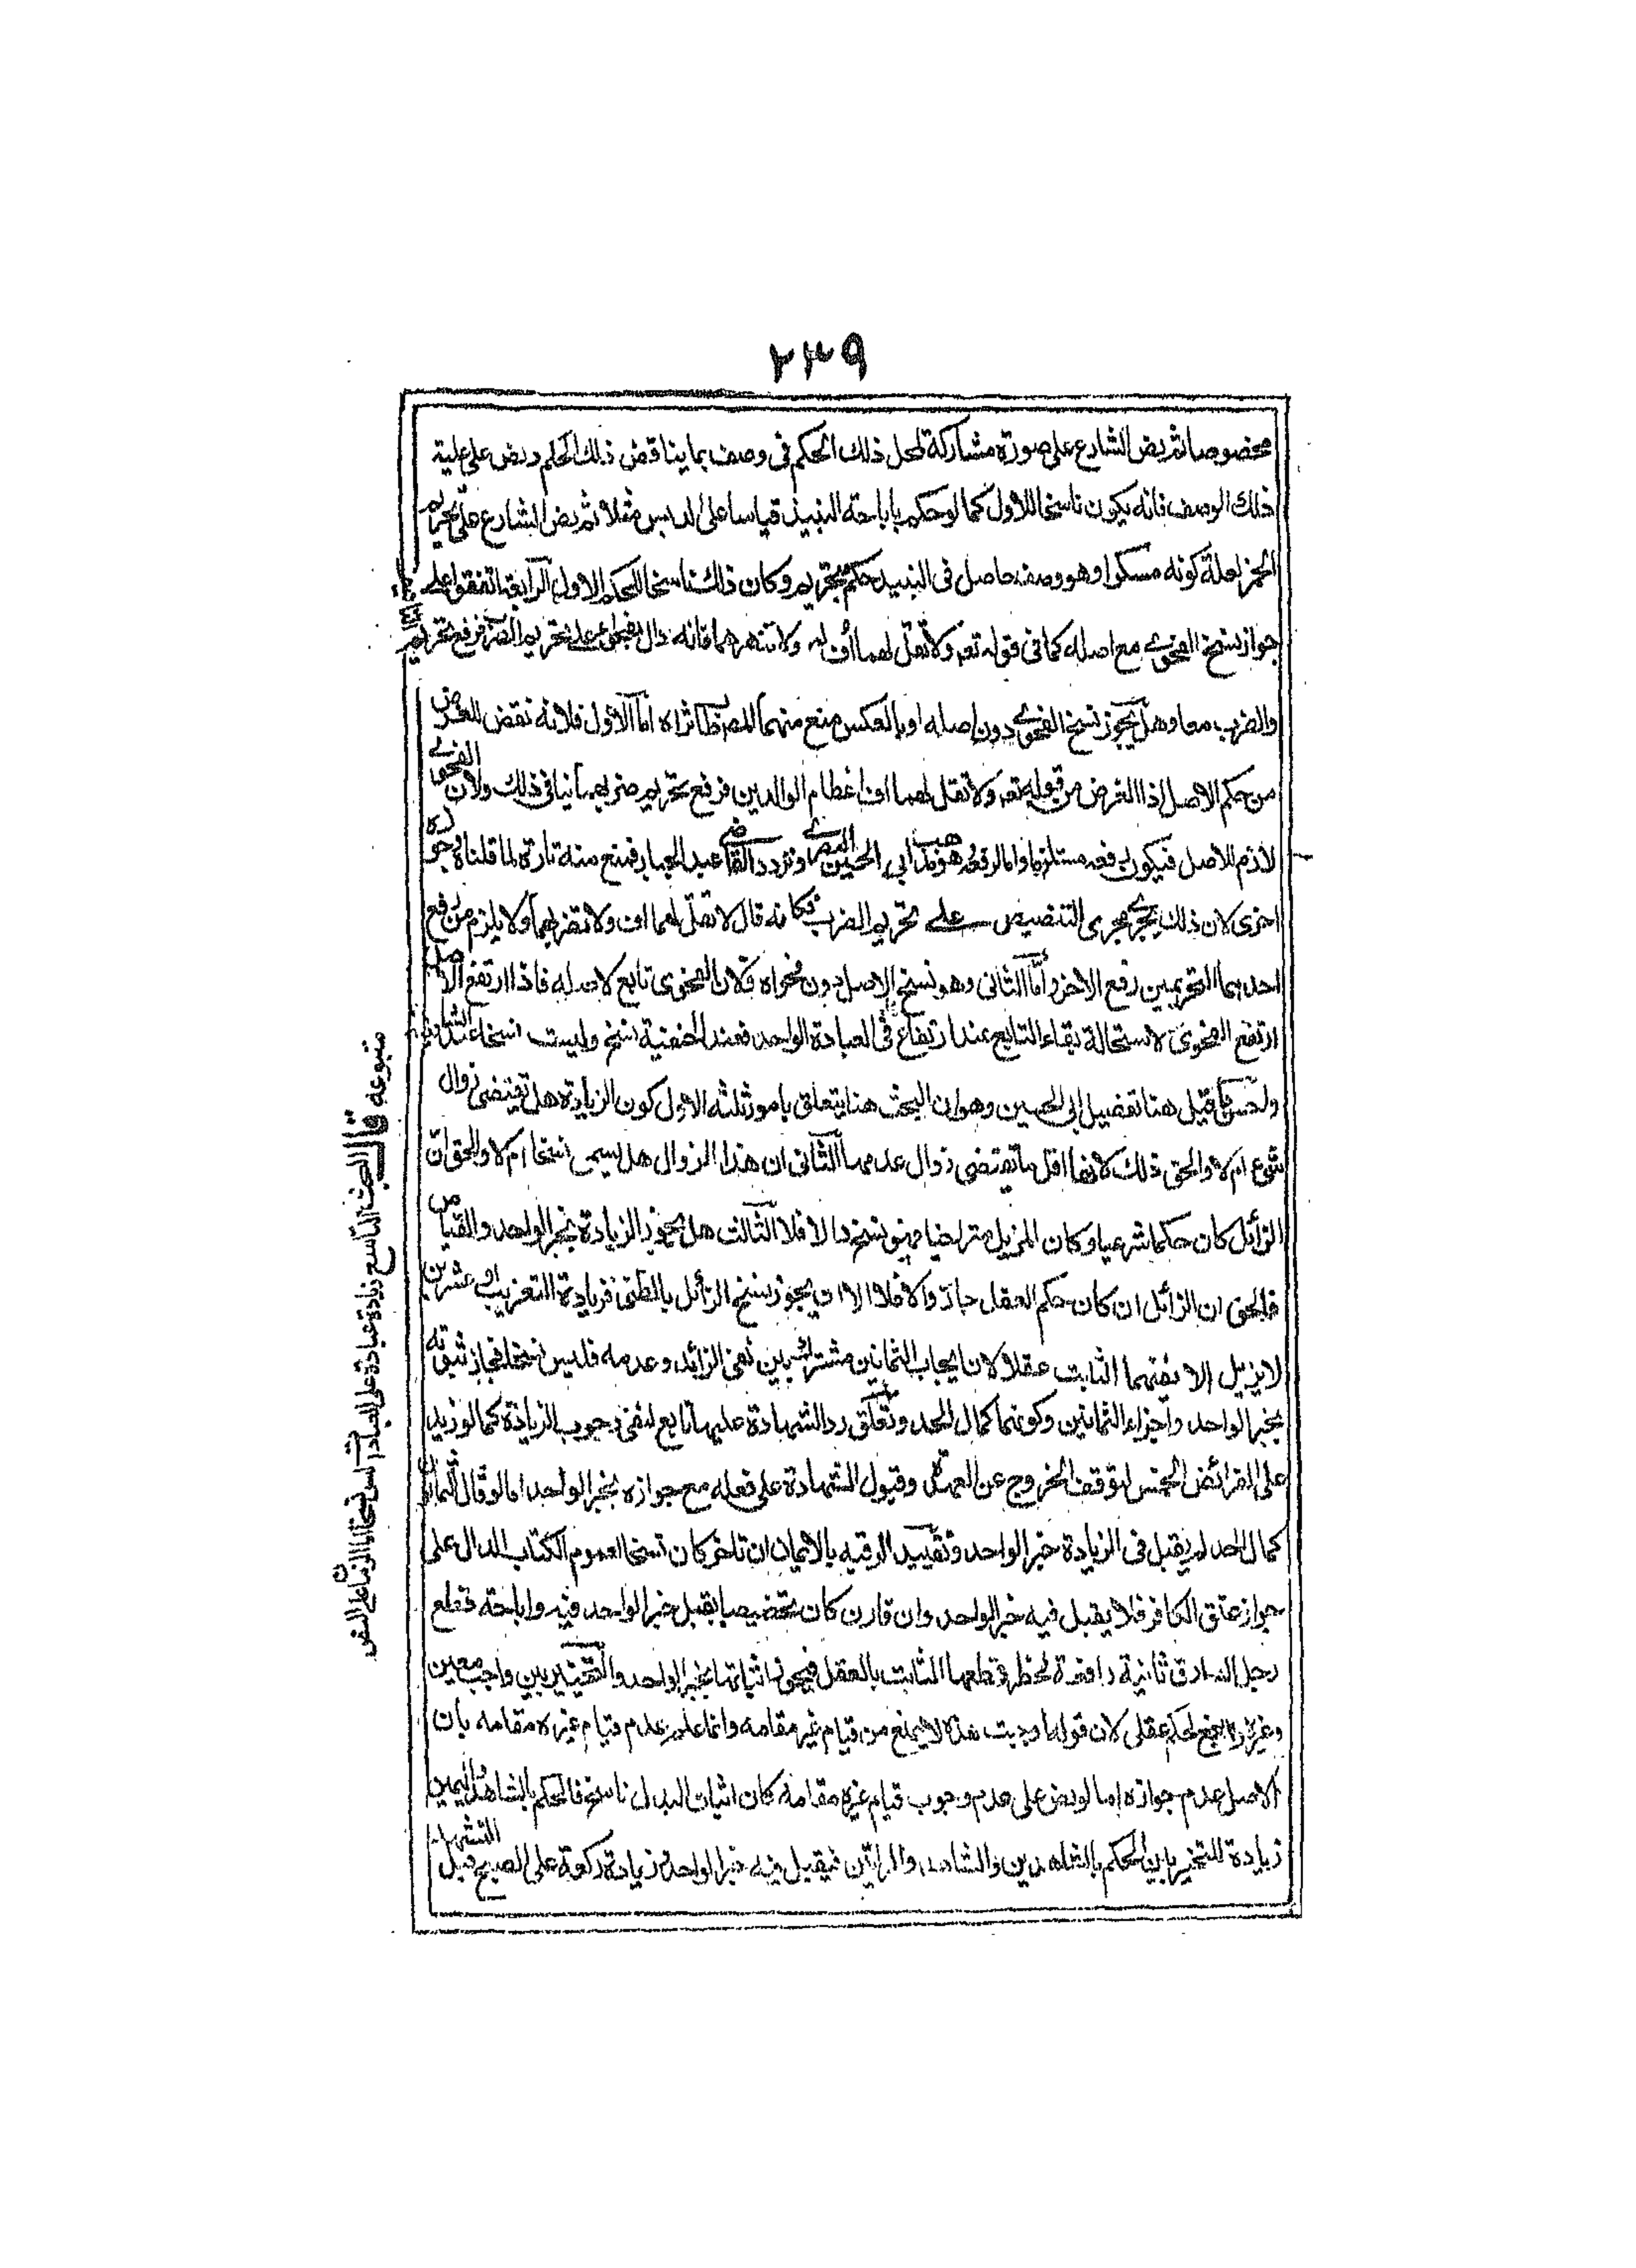 ٢٣٩
مخصوصا ثم ينص الشارع على صورة مشاركة لمحل ذلك الحكم في وصف بما يناقض ذلك الحكم وينص على علية
ذلك الوصف فانه يكون ناسخا للاول كما لو حكم باباحة النبيذ قياسا على الدبس مثلا ثم ينص الشارع على تحريم
الخمر لعلة كونه مسكرا وهو وصف حاصل في النبيذ حكم بتحريمه وكان ذلك ناسخا للحكم الاول الرابعة اتفقوا على
جواز نسخ الفحوى مع اصله كما في قوله تعه ولا تقل لهما أف ولا تنهرهما فانه دال بفحواه على تحريم الضرب فرفع تحريم
والضرب معا وهل يجوز نسخ الفحوى دون اصله او بالعكس منع منهما المصنف طاب ثراه اما الاول فلانه نقض للغرض
من حكم الاصل اذ الغرض من قوله تعه ولا تقل لهما اف اعظام الوالدين فرفع تحريم ضربهما ينافي ذلك ولان الفحوى
لازم للاصل فيكون رفعه مستلزما وهو مذهب ابي الحسين البصري وتردد القاضي عبد الجبار فمنع منه تارة لما قلناه وجوزه
اخرى لان ذلك يجري مجرى التنصيص على تحريم الضرب فكانه قال لا تقل لهما اف ولا تضربهما ولا يلزم من رفع
احد هما التحريمين رفع الاخر واما الثاني وهو نسخ الاصل دون فحواه فلان الفحوى تابع لاصله فاذا ارتفع الاصل
ارتفع الفحوى لاستحالة بقاء التابع عند ارتفاع في العبادة الواحدة فعند الحنفية نسخ وليست نسخا عند الشافعية
وقيل هنا تفصيل ابي الحسين وهو ان البحث هنا يتعلق بامور ثلثه الاول كون الزيادة هل تقتضى زوال
شيء ام لا والحق ذلك لانها اقل ما تقتضى زوال عدمها الثاني ان هذا الزوال هل يسمى نسخا ام لا والحق ان
الزائل كان حكما شرعيا وكان المزيل متراخيا سمى نسخا والا فلا الثالث هل يجوز الزيادة بخبر الواحد والقياس
فالحق ان الزائل ان كان حكم العقل جاز والا فلا الا ان يجوز نسخ الزائل بالظني فزيادة التغريب او عشرين
لا يزيل الا نفيهما الثابت عقلا لان ايجاب الثمانين مشترك بين نفي الزائد وعدمه فليس نسخا فجاز ثبوته
بخبر الواحد واجزاء الثمانين وكونها كمال الحد وتعلق رد الشهادة عليها تابع لنفى وجوب الزيادة كما لو زيد
على الفرائض الخمس لتوقف الخروج عن العهدة وقبول الشهادة على فعله مع جوازه بخبر الواحد اما لو قال الثمانين
كمال الحد لم يقبل في الزيادة خبر الواحد وتقييد الرقبه بالايمان ان تاخر كان نسخا لعموم الكتاب الدال على
جواز عتق الكافر فلا يقبل فيه خبر الواحد وان قارن كان تخصيصا يقبل خبر الواحد فيه واباحة قطع
رجل السارق ثانية رافعة لحظر قطعها الثابت بالعقل فيجوز اثباتها بخبر الواحد والتخيير بين واجب معين
وغيره رافع لحكم عقلي لان قوله اوجبت هذا لا يمنع من قيام غيره مقامه وانما علم عدم قيام غيره مقامه بان
الاصل عدم جوازه اما لو نص على عدم وجوب قيام غيره مقامه كان اثبات البدل ناسخا فالحكم بالشاهد واليمين
زيادة للتخيير بين الحكم بالشاهدين والشاهد والمراتين فيقبل فيه خبر الواحد وزيادة ركعة على الصبح قبل التشهد
متبوعه قال البحث التاسع زيادة عبادة على العبادات ليس نسخا اما الزيادة على النص